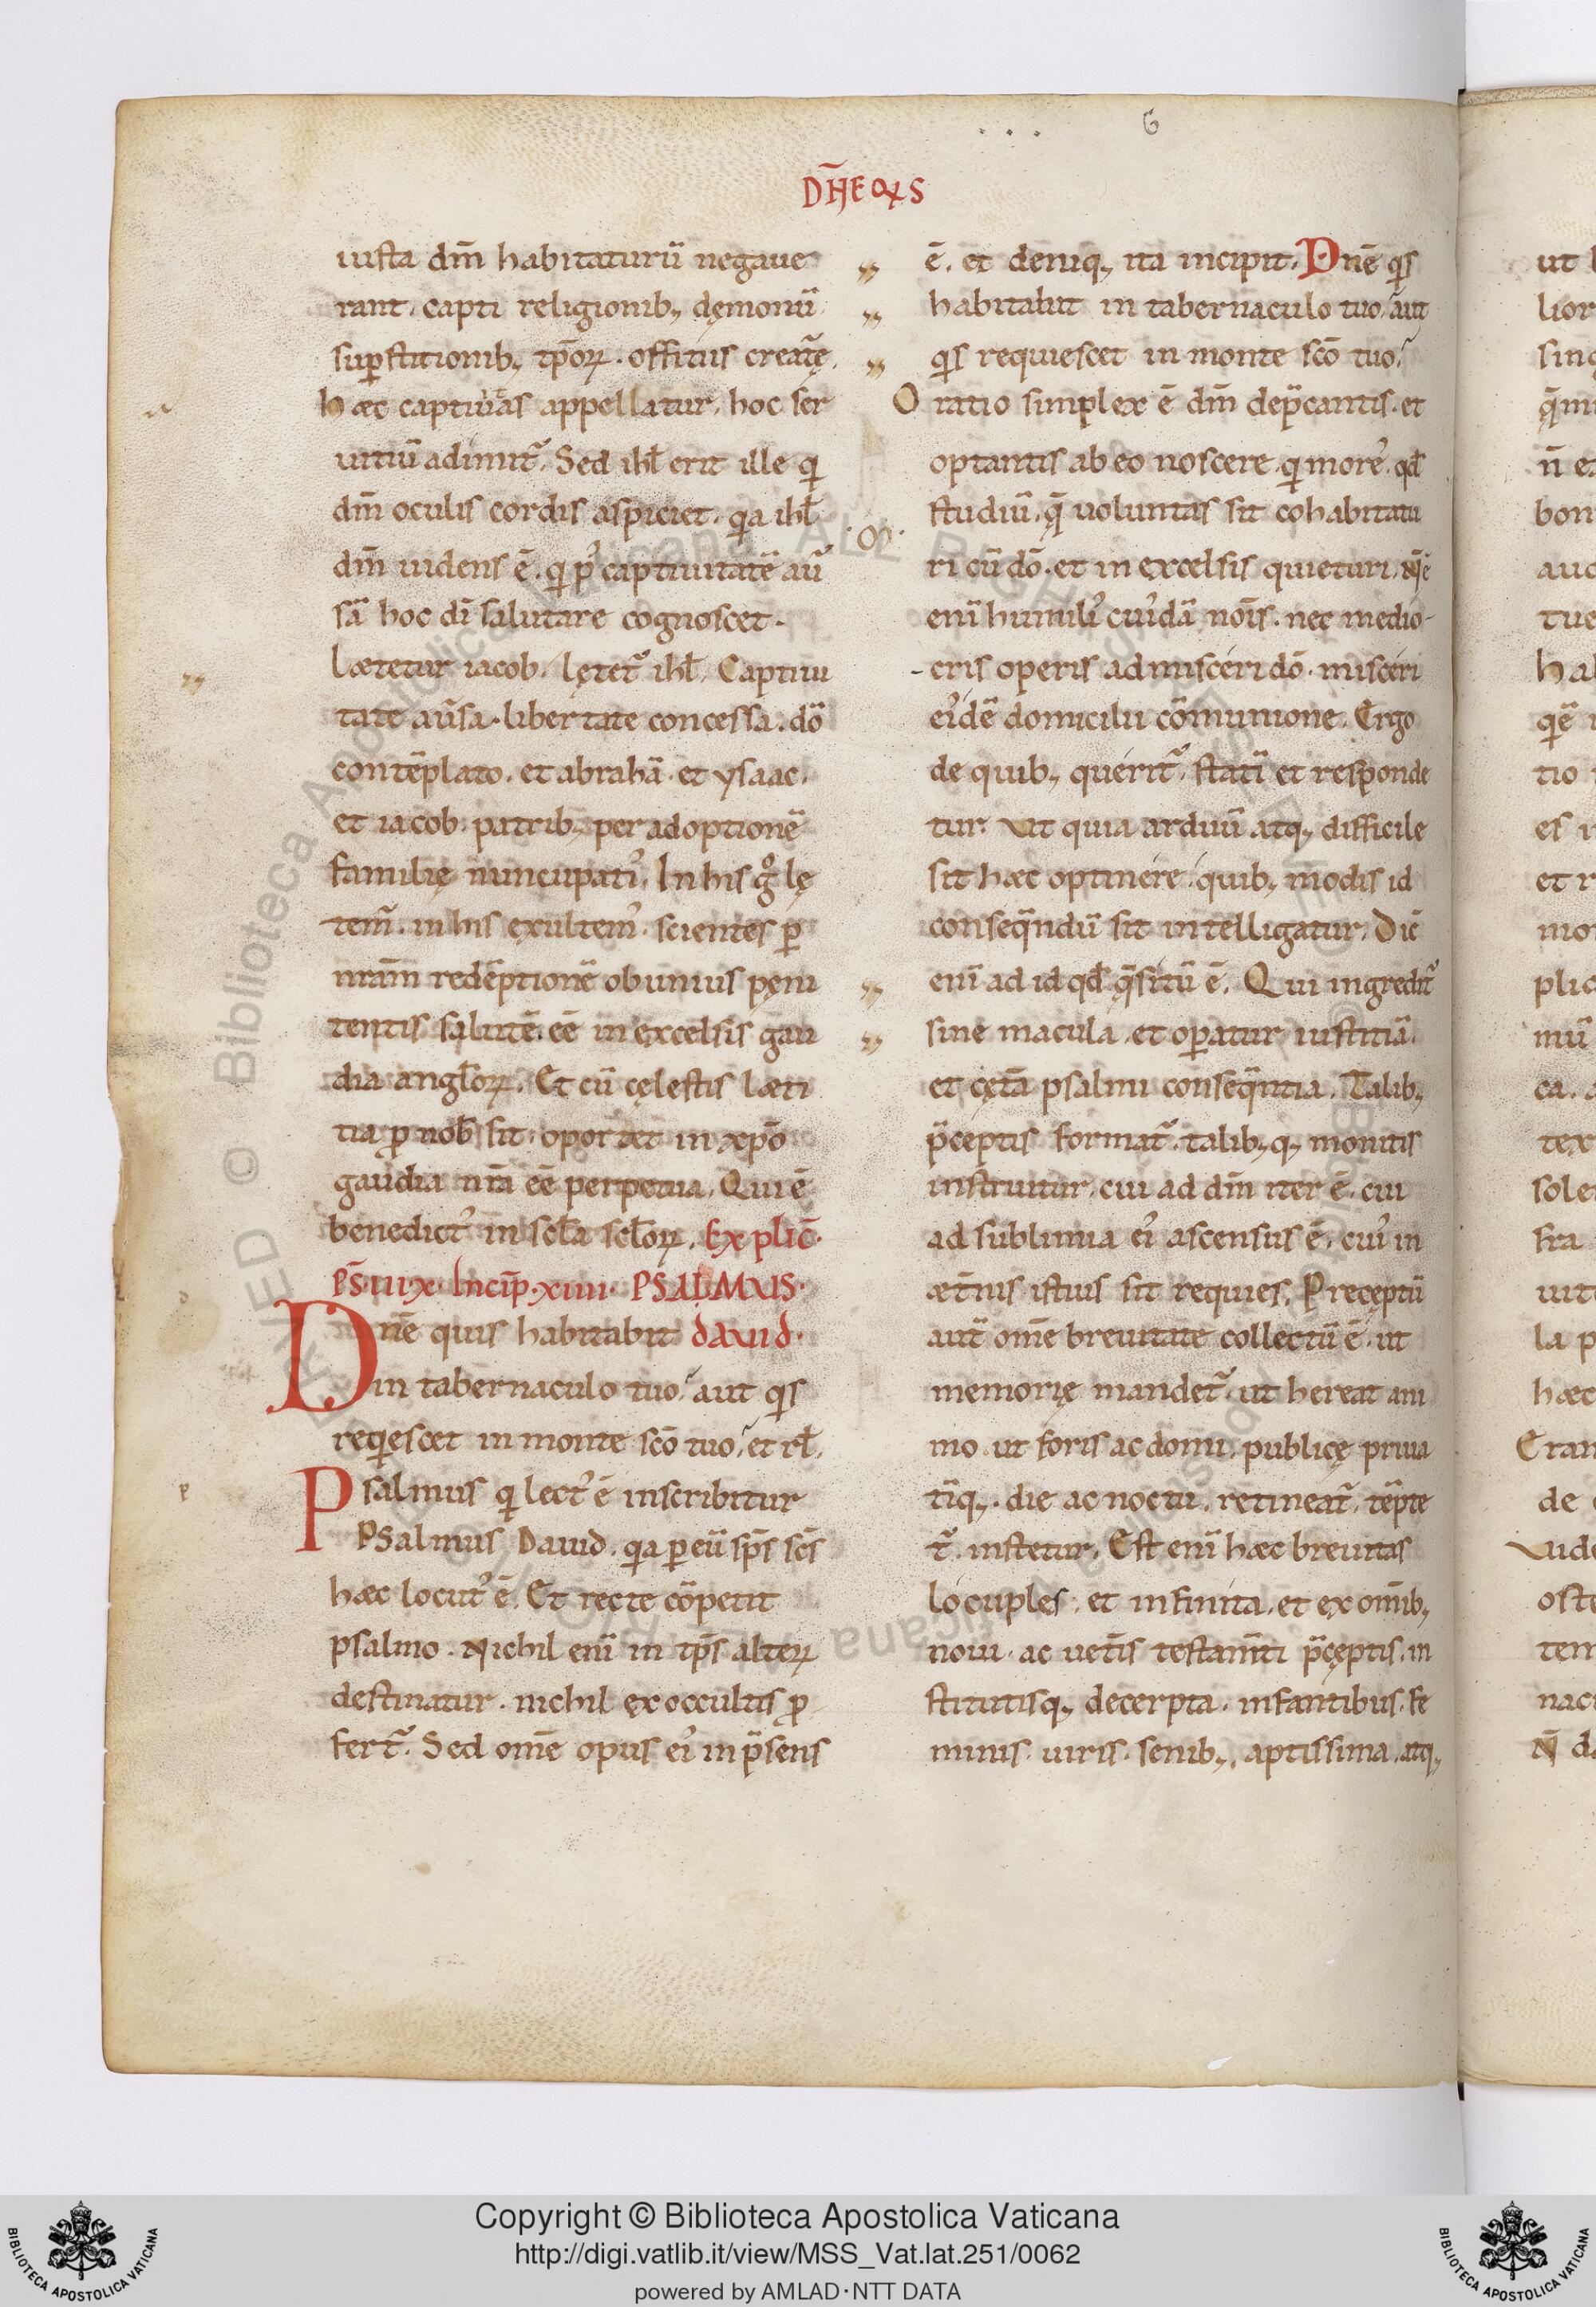 6
DN̄E QIS
iusta dm̄ habitaturū negaue
rant. capti religionib; dęmonū
suꝑstitionib; tp̄oꝝ. offitiis creatę.
hæc captiuitas appellatur. hoc ser
uitiū adimit̃. Sed ihł erit ille qi
dm̄ oculis cordis aspiciet. qia ihł
dm̄ uidens ē. qi p᾽ captiuitatē au᷑
sā hoc dī salutare cognoscet.
Lætetur iacob. lętet̃ ihł. Captiui
tate au᷑sa. libertate concessa. dō
contēplato. et abrahā. et ysaac.
et iacob. patrib; per adoptionē
familię nuncupati᾽. In his gͦ lę
tem᷑. in his exultem᾽. scientes ꝓ
nrām redēptionē ob unius pęni
tentis salutē. eē in excelsis gau
dia angłoꝝ. Et cū cęlestis læti
tia ꝓ nob̄ sit. oportet in xp̄o
gaudia nrā eē perpetua. Qui ē
benedict᾽ in scła scłoꝝ. Explic̄.
PS̄. IIIX. Incip̄. XIIII. PSALMUS.
Dnē quis habitabit DAVID.
in tabernaculo tuo, aut qis
reqiescet in monte scō tuo, et rł.
Psalmus qi lect᾽ ē inscribitur
Psalmus Dauid. qia ꝑ eū sp̄s sc̄s
hæc locut᾽ ē. Et recte cōpetit
psalmo. Nichil enī in tp̄s alteꝝ
destinatur. nichil ex occultis ꝓ
fert̃. Sed omē opus ei᾽ in p̄sens
ē. et deniq; ita incipit. Dnē qis
habitabit in tabernaculo tuo, aut
qis requiescet in monte scō tuo,
Oratio simplex ē dm̄ dep̄cantis. et
optantis ab eo noscere. qi more᾽. qđ
studiū. q̄ uoluntas sit cohabitatu
ri cū dō. et in excelsis quieturi. Ne᷑ ē
enī humili᾽ cui᾽dā nōis. nec medio-
-cris operis admisceri dō. misceri
ei᾽dē domicilii cōmunione. Ergo
de quib; querit̃. statī et responde
tur. Ut quia arduū atq; difficile
sit hæc optinere. quib; modis id
conseq̄ndū sit intelligatur. Dic̄
enī ad id qđ q̄sitū ē. Qui ingredit̃
sine macula. et oꝑatur iustitiā.
et cęt̄a psalmi conseq̄ntia. Talib;
p̄ceptis format̃. talib;q; monitis
instruitur. cui ad dm̄ iter ē. cui
ad sublimia ei᾽ ascensus ē. cui᾽ in
æt̄nis istius sit requies. Preceptū
autē omē breuitate collectū ē. ut
memorię mandet̃. ut hereat ani
mo. ut foris ac domi. publicę priua
tīq;. die ac noctu. retineat̃. tēpte
t̃. instetur. Est enī hæc breuitas
locuples. et infinita. et ex omnīb;
noui. ac uet̄is testam̄ti p̄cęptis. in
stitutisq; decerpta. infantibus. fe
minis. uiris. senib;. aptissima. atq;
Copyright © Biblioteca Apostolica Vaticana
http://digi.vatlib.it/view/MSS_Vat.lat.251/0062
powered by AMLAD·NTT DATA